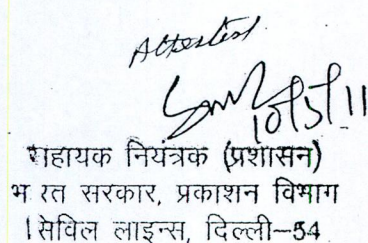 Attested
10/5/11
सहायक नियंत्रक (प्रशासन)
भारत सरकार, प्रकाशन विभाग
सिविल लाइन्स, दिल्ली–54